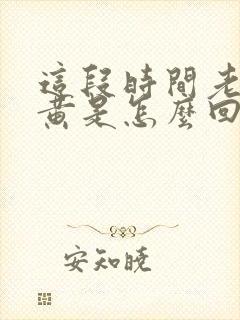 這段時間老
黃是怎麼回
安知曉